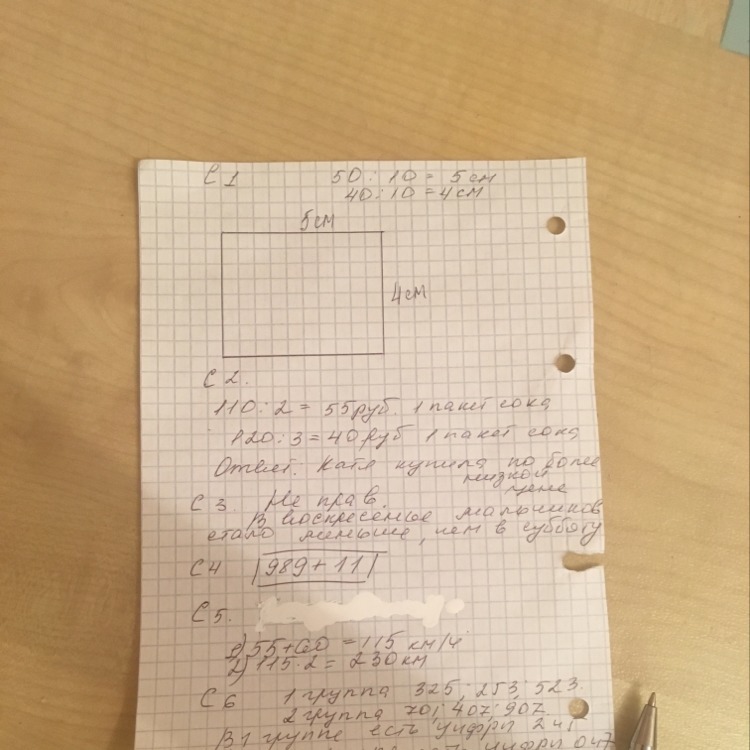 С 1 50 : 10 = 5 см
40 : 10 = 4 см
5см
4см
С 2.
110 : 2 = 55 руб. 1 пакет сока
120 : 3 = 40 руб 1 пакет сока
Ответ: Катя купила по более
низкой
цене
С 3. Не прав.
В воскресенье мальчиков
стало меньше, чем в субботу
С 4 989 + 11
С 5.
1) 55+60 = 115 км/ч
2) 115·2 = 230 км
С 6 1 группа 325; 253; 523.
2 группа 701; 407; 907.
В 1 группе есть цифры 2 и
цифры 0 и 7